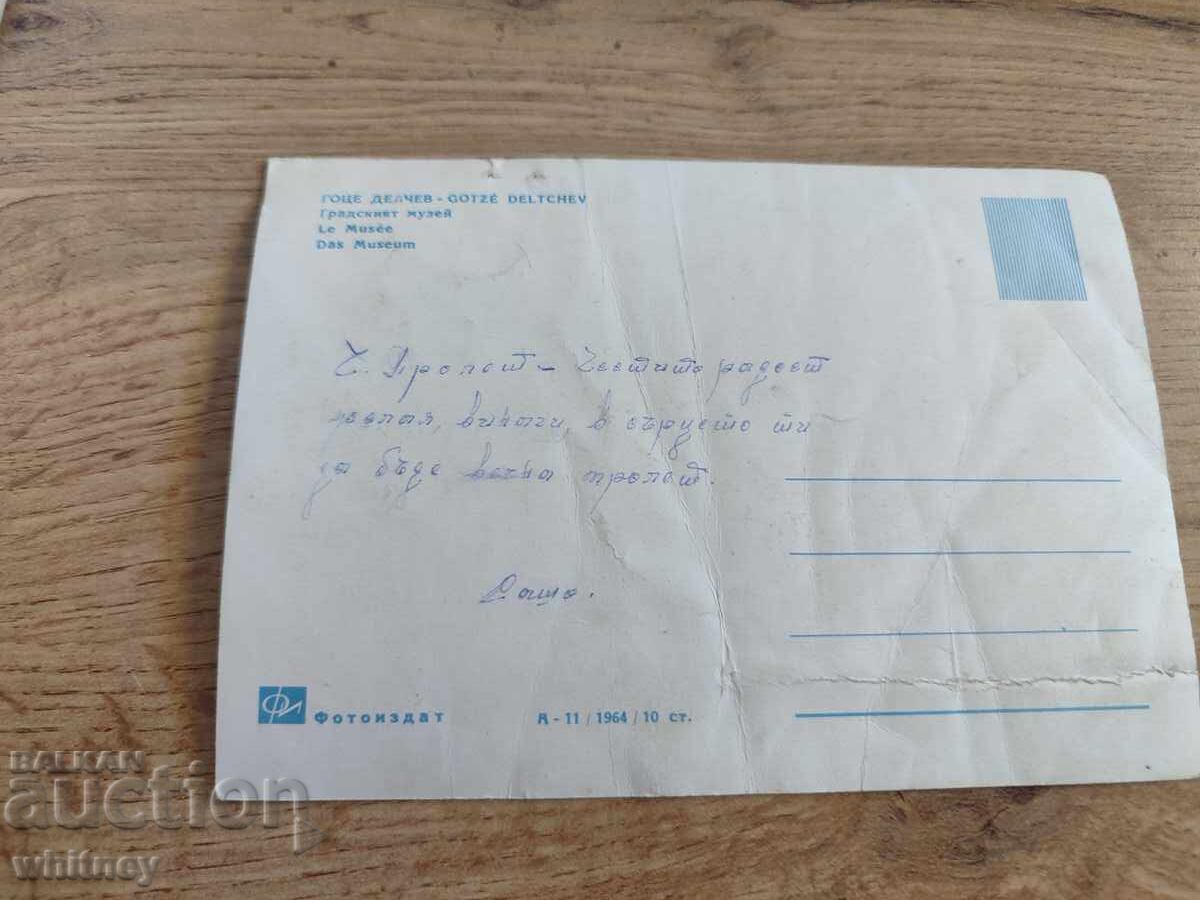 ГОЦЕ ДЕЛЧЕВ - GOTZÉ DELTCHEV
Градският музей
Le Musée
Das Museum
Ч. Пролет - Честито радост
желая, винаги, в сърцето ти
да бъде вечна пролет.
Фотоиздат
А - 11 / 1964 / 10 ст.
BALKAN
auction
whitney